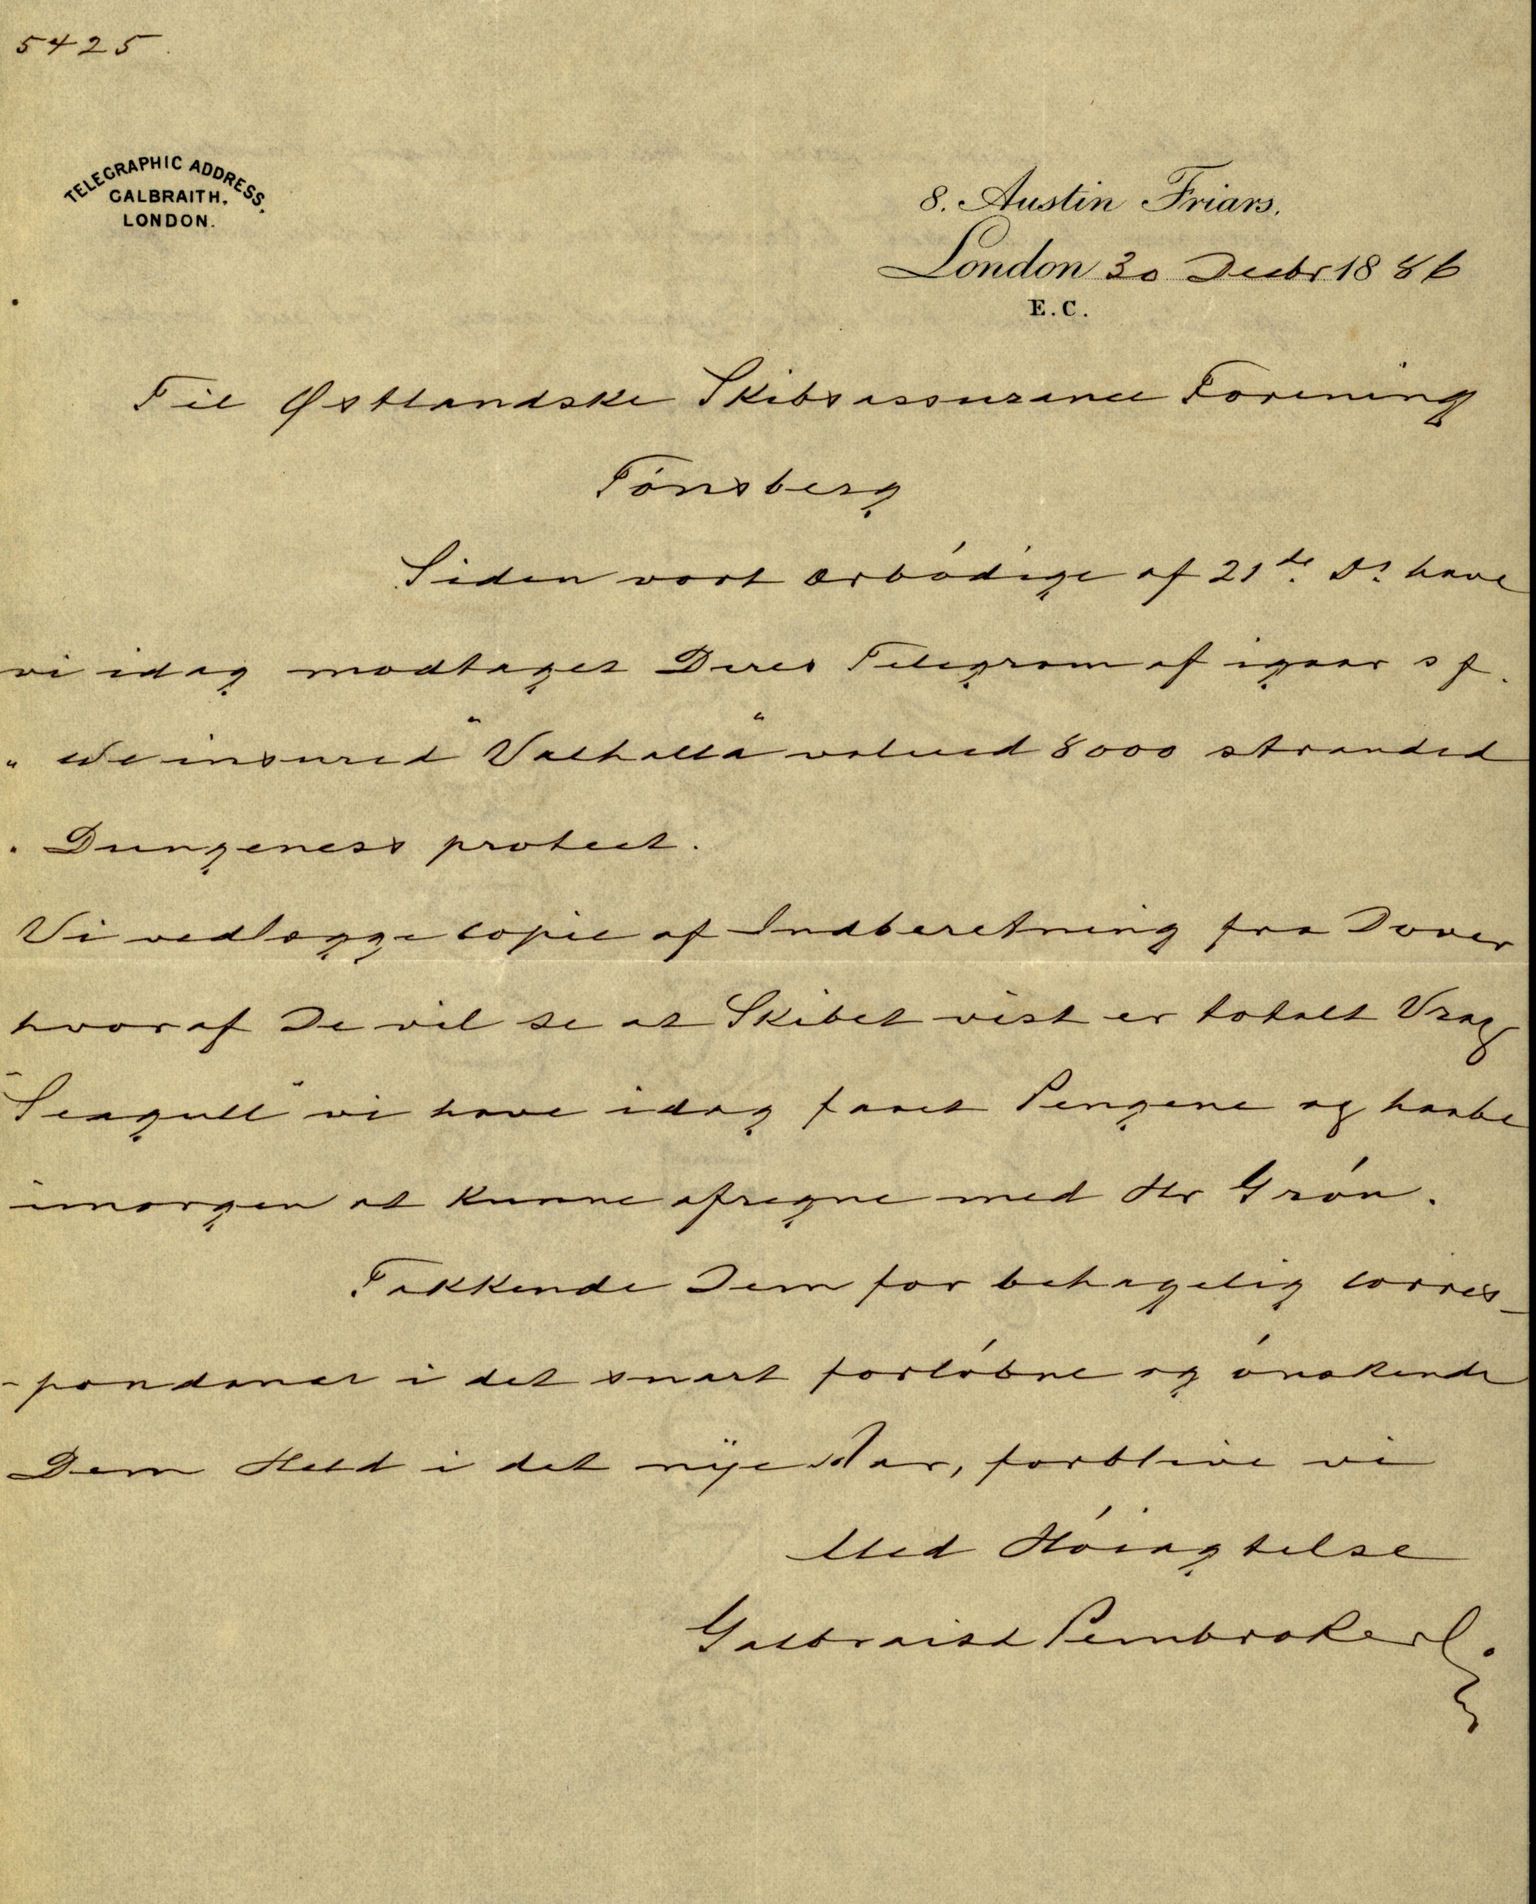 5425
TELEGRAPHIC ADDRESS.
GALBRAITH,
LONDON.
8. Austin Friars.
London 30 Decbr 1886
E.C.
Til Østlandske Skibsassurance Forening
Tónsberg
Siden vort ærbódige af 21de. Ds. have
vi idag modtaget Deres Telegram af igaar s f.
" We insured "Valhalla" valued 8000 stranded
" Dungeness protect.
Vi vedlægge copie af Indberetning fra Dover
hvoraf De vil se at Skibet vist er totalt Vrag
"Seagull" vi have idag faaet Pengene og haabe
imorgen at kunne afregne med Hr Grón.
Takkende Dem for behagelig corres-
-pondance i det snart forlóbne og ónskende
Dem Held i det nÿe Aar, forblive vi
Med Hóiagtelse
Galbraith Pembroke